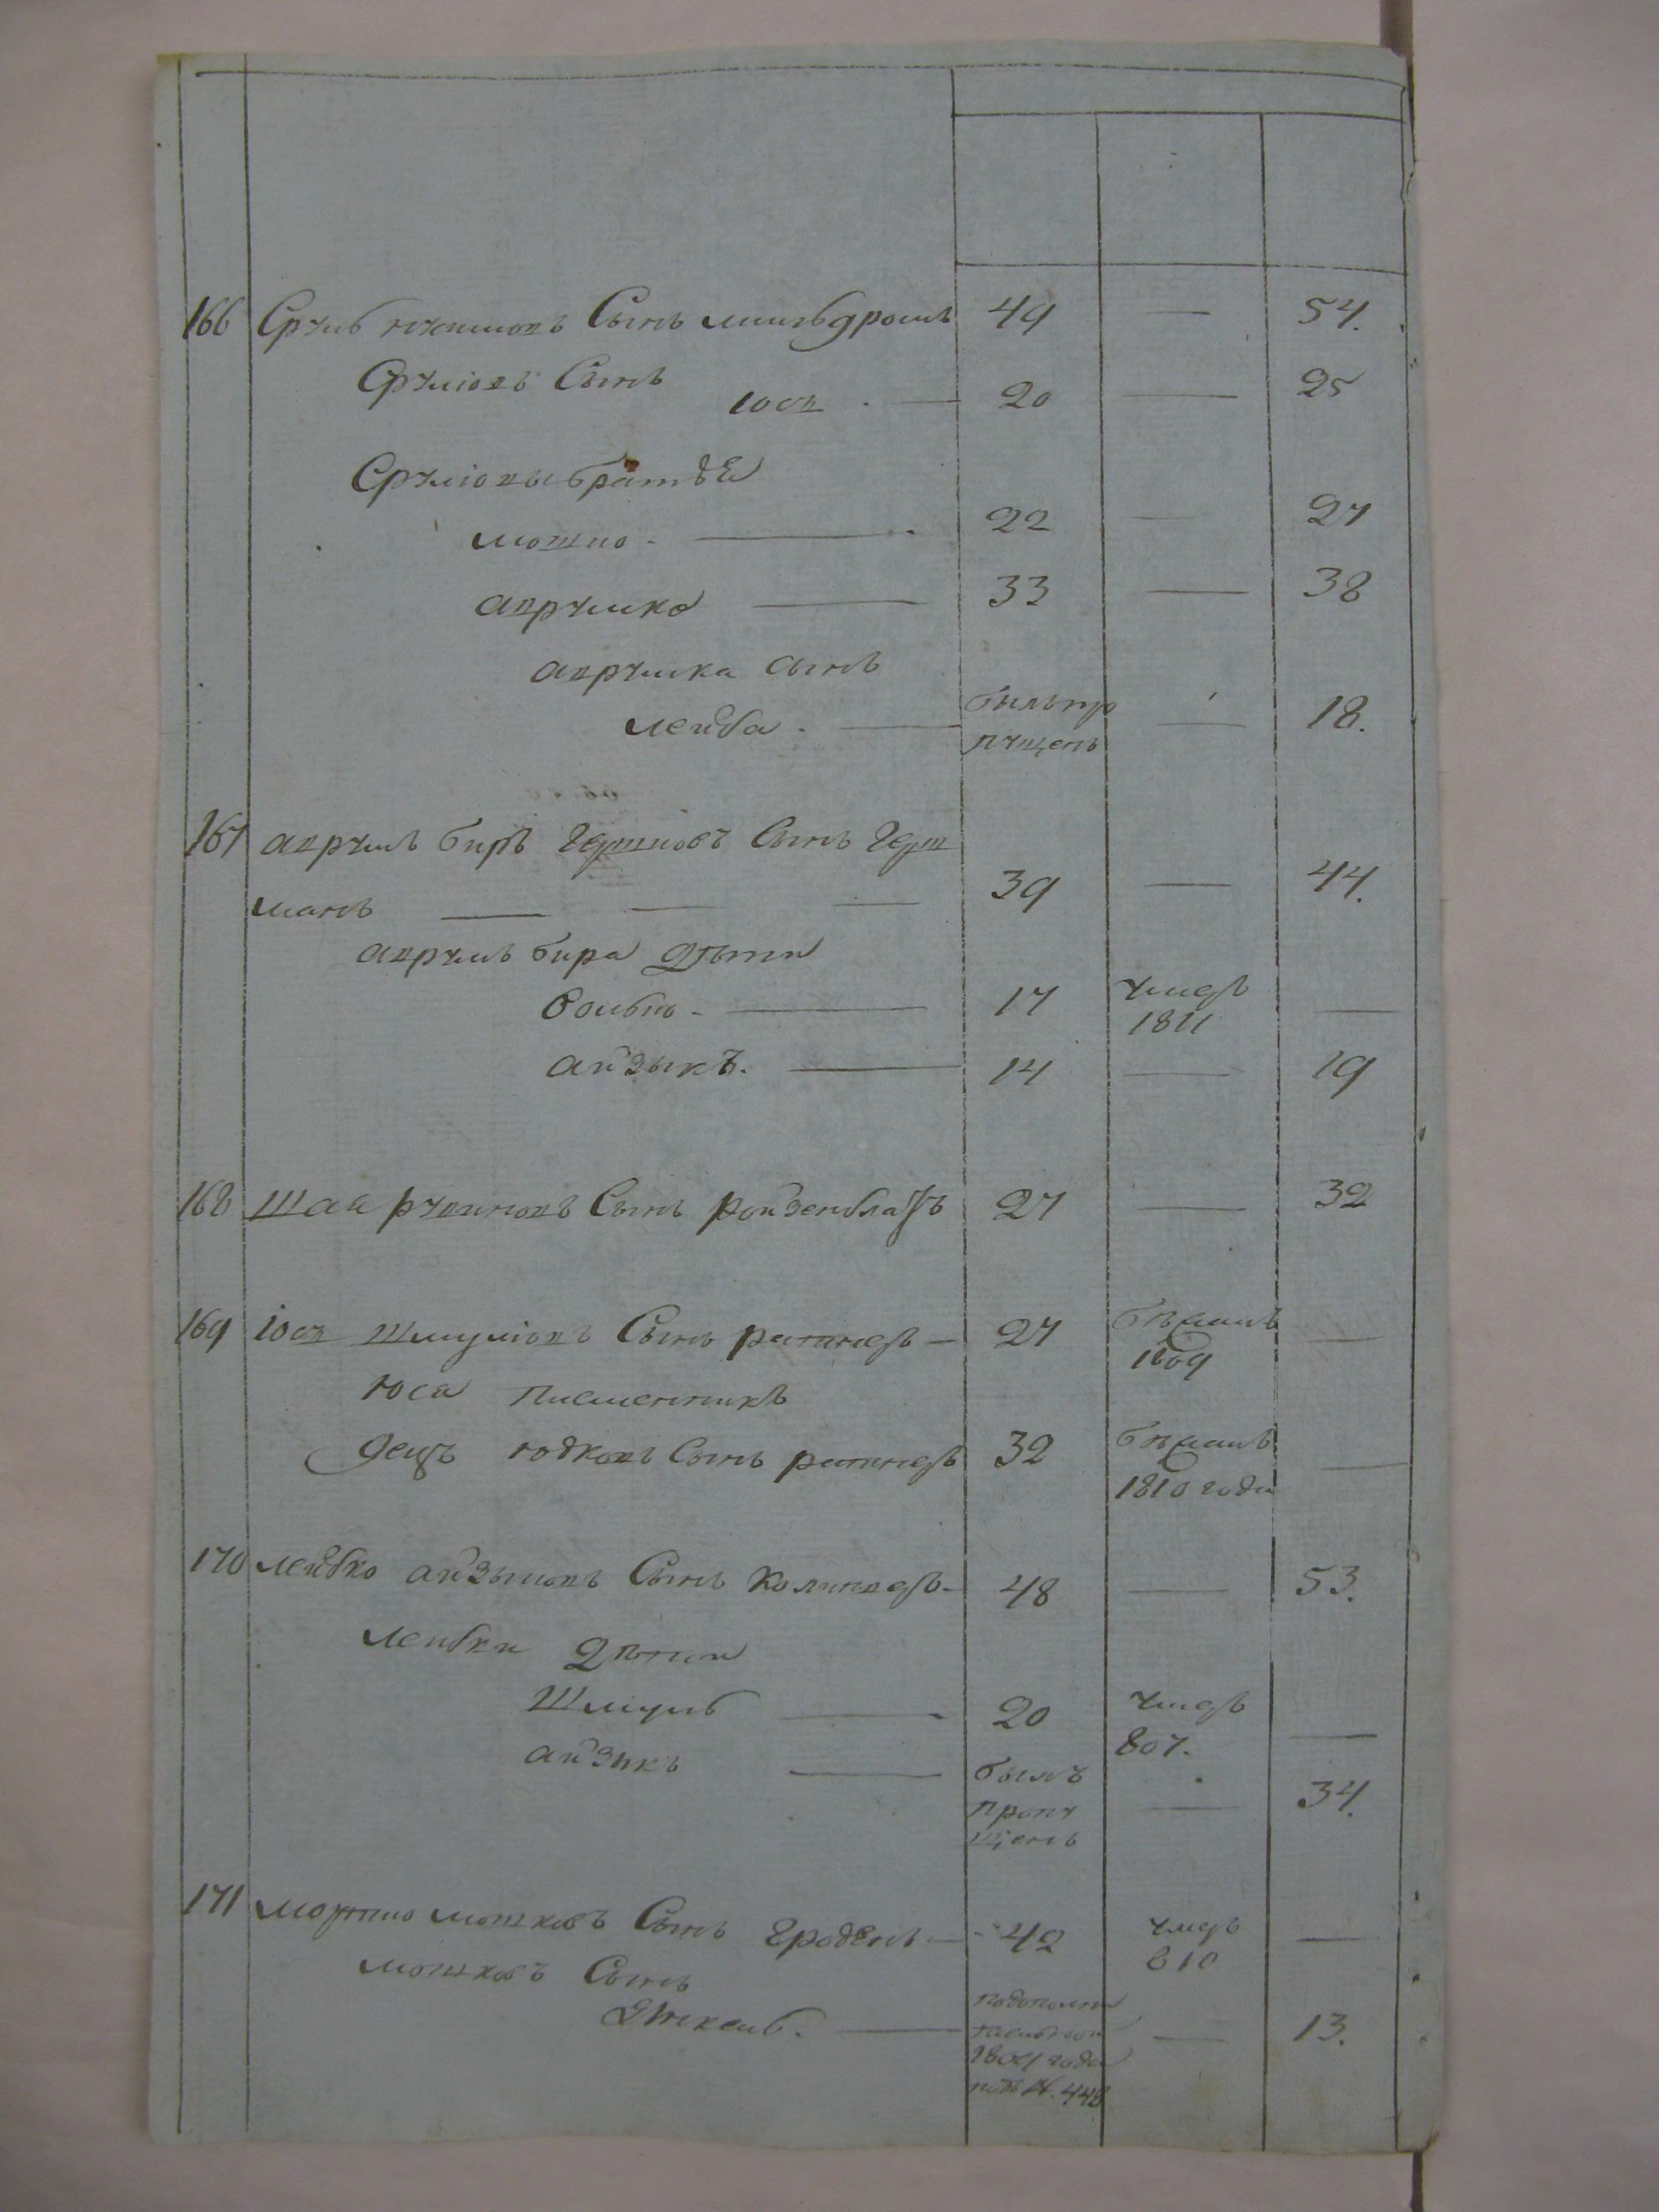 166 Срулъ Сынъ 49 — 54.
Срулiовъ Сынъ
Iосъ . — 20 — 25
Срулiовы братья
мошко - — 22 — 27
аврумко — 33 — 38
аврумка сынъ
лейба . — былъ про
пущенъ — 18.
167 аврумъ беръ Гершковъ Сынъ Гер
манъ — — — 39 — 44.
аврумъ бера дѣти
Волько - — 17 умеръ
1811 —
айзыкъ. — 14 — 19
168 Шая рувиновъ Сынъ розенблатъ 27 — 32
169 iосъ Шмулiовъ Сынъ ратнеръ — 27 бѣжалъ
1809 —
Юса племенникъ
юдковъ Сынъ ратнеръ 32 бѣжалъ
1810 года —
170 лейбко айзыковъ Сынъ - 48 — 53.
лейбки Дѣти
Шмуль — 20 умеръ
807. —
айзикъ — былъ
пропу
щенъ — 34.
171 мошко мошковъ Сынъ Гроденъ — 42 умеръ
810 —
мошковъ Сынъ
Янкель. — подополни
тельной
1804 года
подъ №. 448 — 13.